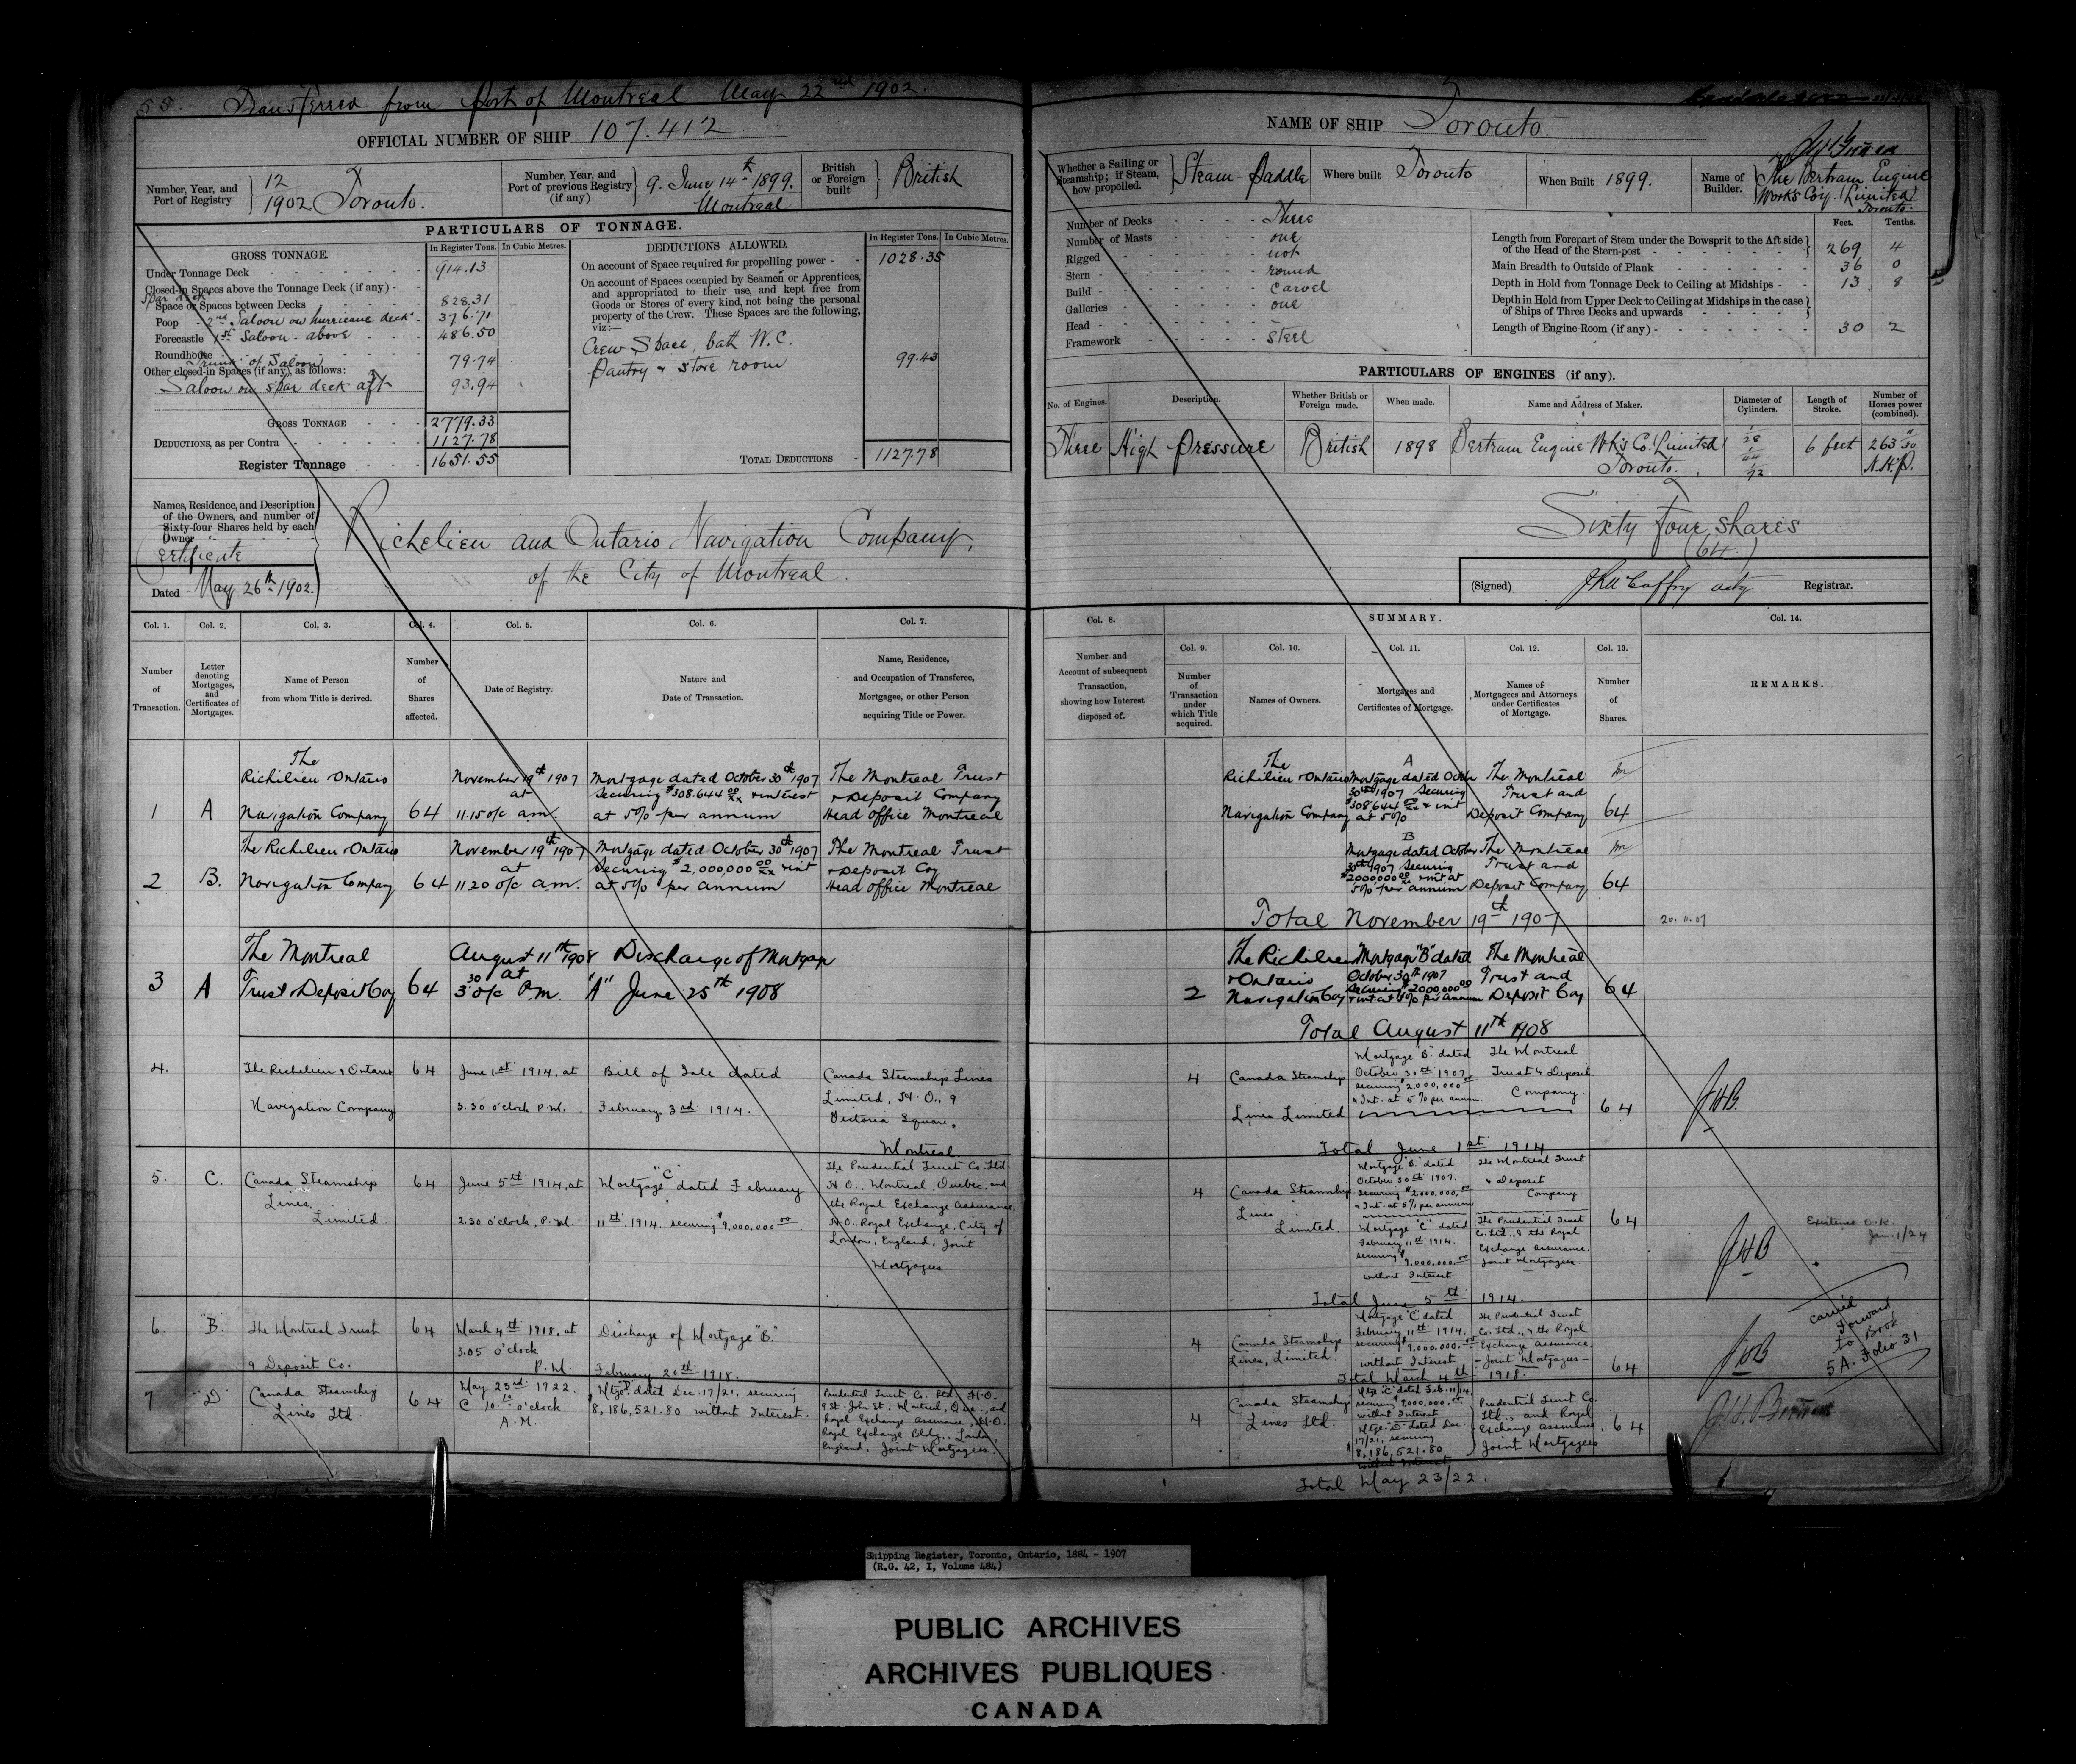 55. Transferred from Port of Montreal May 22nd 1902.
OFFICIAL NUMBER OF SHIP 107.412
Number, Year, and
Port of Registry
12
1902 Toronto.
Number, Year, and
Port of previous Registry
(if any)
9. June 14th 1899.
Montreal
British
or Foreign
built
British
PARTICULARS OF TONNAGE.
GROSS TONNAGE.
In Register Tons. In Cubic Metres.
Under Tonnage Deck 914.13
Closed-in Spaces above the Tonnage Deck (if any)
Spar deck
Space or Spaces between Decks 828.31
Poop 2nd Saloon on hurricane deck 376.71
Forecastle 1st Saloon above 486.50
Roundhouse
of Saloon 79.74
Other closed-in Spaces (if any), as follows:
Saloon on spar deck aft 93.94
GROSS TONNAGE 2779.33
DEDUCTIONS, as per Contra 1127.78
Register Tonnage 1651.55
DEDUCTIONS ALLOWED.
In Register Tons. In Cubic Metres.
On account of Space required for propelling power 1028.35
On account of Spaces occupied by Seamen or Apprentices,
and appropriated to their use, and kept free from
Goods or Stores of every kind, not being the personal
property of the Crew. These Spaces are the following,
viz:—
Crew Space, bath W.C.
Pantry & store room 99.43
TOTAL DEDUCTIONS 1127.78
Names, Residence, and Description
of the Owners, and number of
Sixty-four Shares held by each
Owner
Certificate
Dated May 26th 1902.
Richelieu and Ontario Navigation Company,
of the City of Montreal.
Col. 1. Col. 2. Col. 3. Col. 4. Col. 5. Col. 6. Col. 7.
Number
of
Transaction.
Letter
denoting
Mortgages,
and
Certificates of
Mortgages.
Name of Person
from whom Title is derived.
Number
of
Shares
affected.
Date of Registry.
Nature and
Date of Transaction.
Name, Residence,
and Occupation of Transferee,
Mortgagee, or other Person
acquiring Title or Power.
1 A
The
Richilieu & Ontario
Navigation Company
64
November 19th 1907
at
11.15 o/c am.
Mortgage dated October 30th 1907
Securing $308.644 00/xx & interest
at 5% per annum
The Montreal Trust
& Deposit Company
Head office Montreal
2 B.
The Richilieu & Ontario
Navigation Company
64
November 19th 1907
at
11 20 o/c am.
Mortgage dated October 30th 1907
Securing $2,000,000 00/xx & int
at 5% per annum
The Montreal Trust
& Deposit Coy
Head office Montreal
3 A
The Montreal
Trust & Deposit Coy
64
August 11th 1908
at
3.30 o/c P.m.
Discharge of Mortgage
"A" June 25th 1908
4.
The Richelieu & Ontario
Navigation Company
64
June 1st 1914, at
3.30 o'clock P.M.
Bill of Sale dated
February 3rd 1914.
Canada Steamship Lines
Limited, H.O., 9
Victoria Square,
Montreal
5. C.
Canada Steamship
Lines,
Limited.
64
June 5th 1914, at
2.30 o'clock, P.M.
Mortgage "C" dated February
11th 1914. securing $9,000,000.00
The Prudential Trust Co. Ltd
H.O., Montreal, Quebec, and
the Royal Exchange Assurance,
H.O. Royal Exchange, City of
London, England, Joint
Mortgagees
6. "B."
The Montreal Trust
& Deposit Co.
64
March 4th 1918, at
3.05 o'clock
P.M.
Discharge of Mortgage "B."
February 20th 1918.
7 "D"
Canada Steamship
Lines Ltd.
64
May 23rd 1922.
@ 10.10 o'clock
A.M.
Mtge "D" dated Dec. 17/21, securing
8,186,521.80 without Interest.
Prudential Trust Co. Ltd. H.O.
9 St. John St., Montreal, Que., and
Royal Exchange Assurance, H.O.
Royal Exchange Bldg., London,
England, Joint Mortgagees.
NAME OF SHIP Toronto.
Whether a Sailing or
Steamship; if Steam,
how propelled.
Steam - Paddle
Where built Toronto
When Built 1899.
Name of
Builder.
The Bertram Engine
Works Coy. (Limited)
Toronto.
Number of Decks Three
Number of Masts one
Rigged not
Stern round
Build carvel
Galleries one
Head
Framework steel
Feet. Tenths.
Length from Forepart of Stem under the Bowsprit to the Aft side
of the Head of the Stern-post 269 4
Main Breadth to Outside of Plank 36 0
Depth in Hold from Tonnage Deck to Ceiling at Midships 13 8
Depth in Hold from Upper Deck to Ceiling at Midships in the case
of Ships of Three Decks and upwards
Length of Engine-Room (if any) 30 2
PARTICULARS OF ENGINES (if any).
No. of Engines. Description. Whether British or Foreign made. When made. Name and Address of Maker. Diameter of Cylinders. Length of Stroke. Number of Horses power (combined).
Three High Pressure British 1898
Bertram Engine Wks Co. (Limited)
Toronto.
1/28
1/44
1/72
6 feet
263
N.H.P.
Sixty four shares
(64.)
(Signed) J R McCaffry actg Registrar.
Col. 8. SUMMARY. Col. 14.
Col. 9. Col. 10. Col. 11. Col. 12. Col. 13.
Number and
Account of subsequent
Transaction,
showing how Interest
disposed of.
Number
of
Transaction
under
which Title
acquired.
Names of Owners.
Mortgages and
Certificates of Mortgage.
Names of
Mortgagees and Attorneys
under Certificates
of Mortgage.
Number
of
Shares.
REMARKS.
The
Richilieu & Ontario
Navigation Company
A
Mortgage dated October
30th 1907 Securing
$308644 00/xx & int
at 5%
The Montreal
Trust and
Deposit Company
64
B
Mortgage dated October
30th 1907 Securing
$2000000 00/xx & int at
5% per annum
The Montreal
Trust and
Deposit Company
64
Total November 19th 1907
20.11.07
2
The Richilieu
& Ontario
Navigation Coy
Mortgage "B" dated
October 30th 1907
Securing $2000000 00
& int at 5% per annum
The Montreal
Trust and
Deposit Coy
64
Total August 11th 1908
4
Canada Steamship
Lines Limited
Mortgage "B" dated
October 30th 1907
securing $2,000,000.00
& Int. at 5% per annum.
The Montreal
Trust & Deposit
Company
64
JHB.
Total June 1st 1914
4
Canada Steamship
Lines
Limited.
Mortgage "B" dated
October 30th 1907.
securing $2,000,000.00
& Int. at 5% per annum
The Montreal Trust
& Deposit
Company
Mortgage "C" dated
February 11th 1914.
securing $
9,000,000.00
without Interest
The Prudential Trust
Co. Ltd., & the Royal
Exchange Assurance.
Joint Mortgagees.
64
JHB
Existence O.K.
Jan. 1/24
Total June 5th 1914.
4
Canada Steamship
Lines, Limited.
Mortgage "C" dated
February 11th 1914.
securing $9,000,000.00
without Interest
The Prudential Trust
Co. Ltd., & the Royal
Exchange Assurance,
- Joint Mortgagees -
64
JHB
Carried
Forward
to Book
5A. Folio 31
Total March 4th 1918.
4
Canada Steamship
Lines Ltd.
Mtge "C" dated Feb. 11/14,
securing 9,000,000.00
without Interest
Mtge. "D" dated Dec.
17/21, securing
$8,186,521.80
without Interest
Prudential Trust Co.
Ltd., and Royal
Exchange Assurance
Joint Mortgagees
64
Total May 23/22.
Shipping Register, Toronto, Ontario, 1884 - 1907
(R.G. 42, I, Volume 484)
PUBLIC ARCHIVES
ARCHIVES PUBLIQUES
CANADA